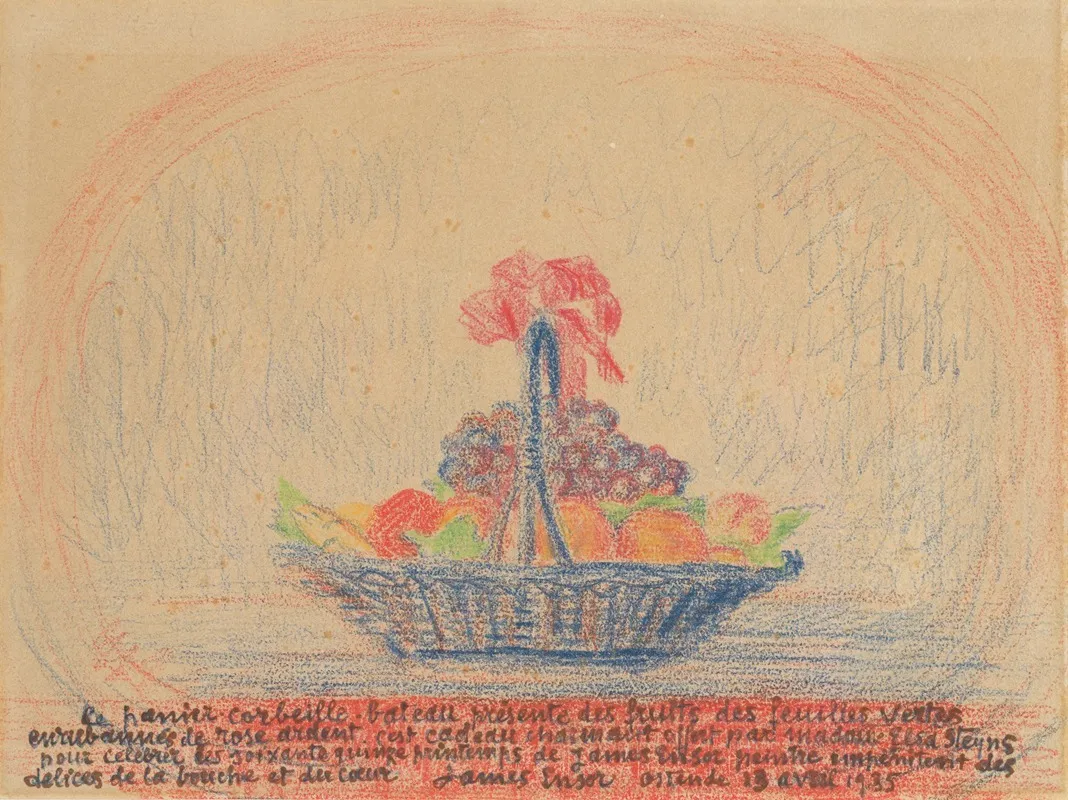 Ce panier corbeille bateau présente des fruits des feuilles vertes
enrubannées de rose ardent, c'est cadeau charmant offert par madame Elsa Steyns
pour célébrer les soixante quinze printemps de James Ensor peintre impénitent des
délices de la bouche et du cœur James Ensor Ostende 13 avril 1935